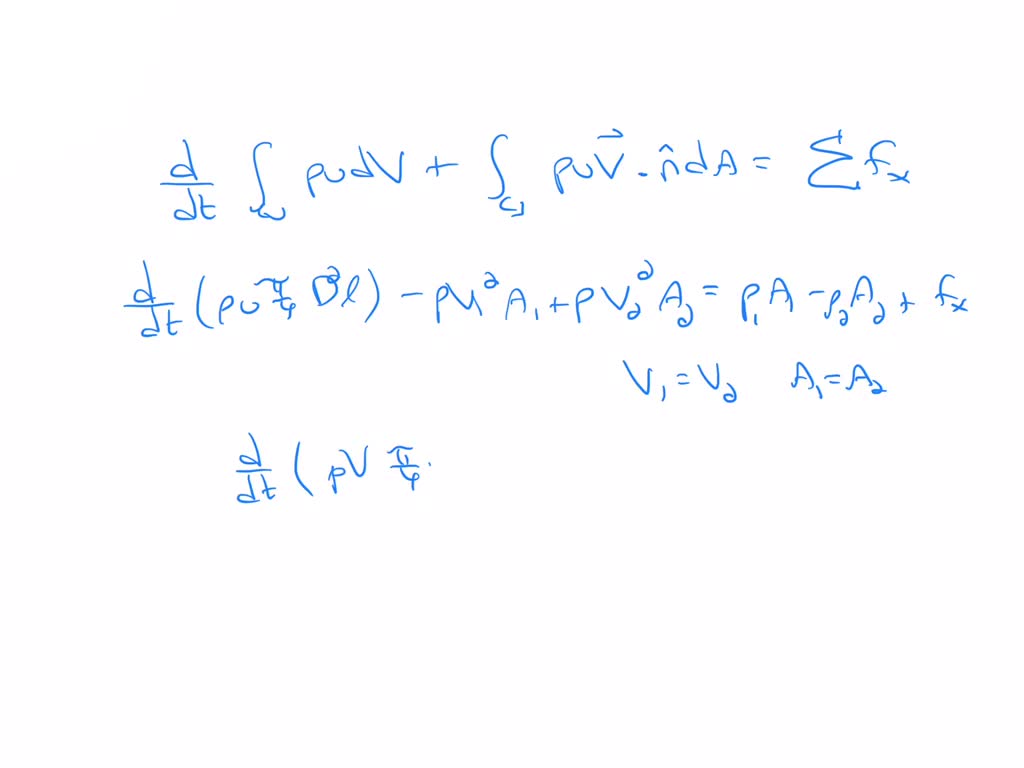 d/dt ∫_cv ρυdV + ∫_cs ρυV⃗ · n̂dA = ∑fₓ
d/dt (ρυ π/4 D²l) − ρV₁²A₁ + ρV₂²A₂ = p₁A − p₂A₂ + fₓ
V₁ = V₂ A₁ = A₂
d/dt ( ρV π/4 ·